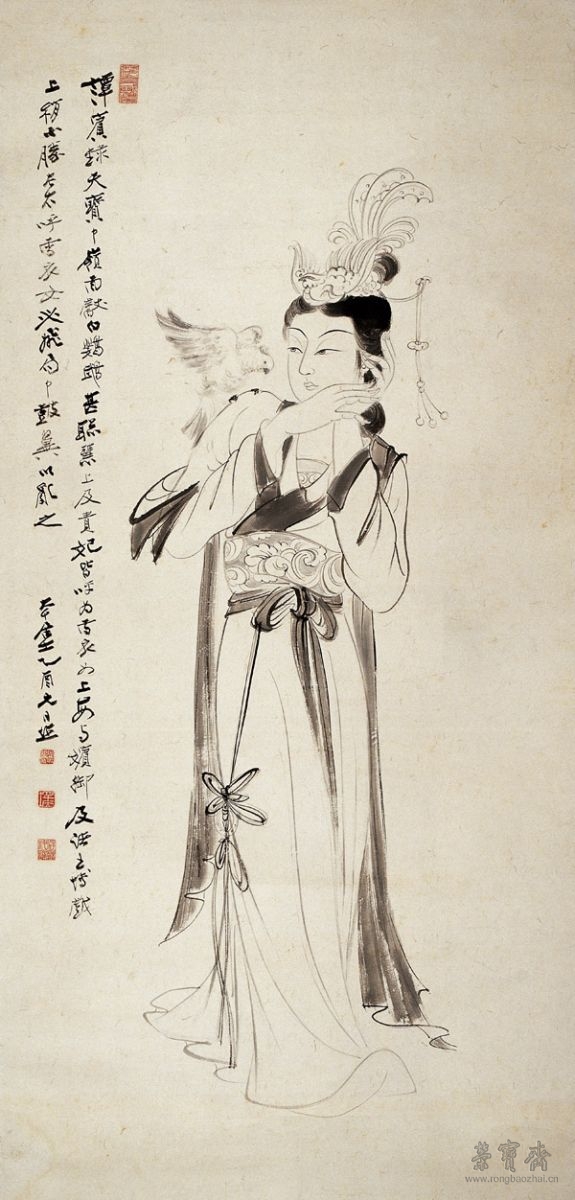 譚賓錄天寶中嶺南獻白鸚鵡甚聰慧上及貴妃皆呼为雪衣女上每与嬪御及諸王博戲
上稍不勝左右呼雪衣女必飛局中鼓翼以亂之
乙酉九月
榮寶齋
www.rongbaozhai.cn